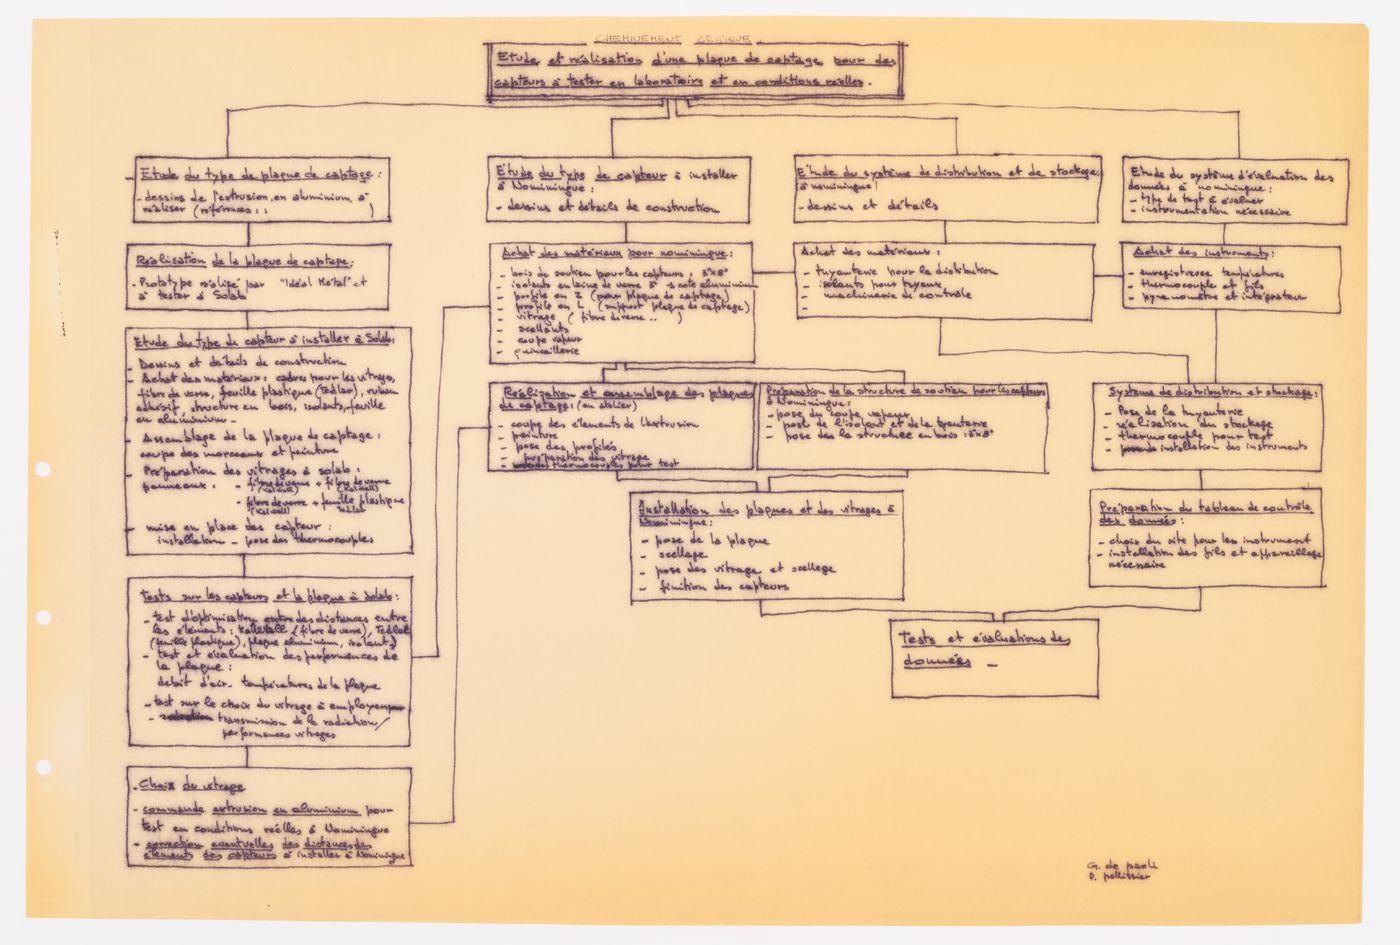 CHEMINEMENT CRITIQUE
Etude et réalisation d'une plaque de captage pour des
capteurs à tester en laboratoire et en conditions réelles.
Etude du type de plaque de captage :
- dessins de l'extrusion en aluminium, à
réaliser (références : : )
Réalisation de la plaque de captage :
- Prototype réalisé par "Idéal Métal" et
à tester à Solab
Etude du type de capteur à installer à Solab :
- Dessins et détails de construction
- Achat des matériaux : cadres pour les vitrages,
fibre de verre, feuille plastique (Tedlar), ruban
adhésif, structure en bois, isolants, feuille
en aluminium -
- Assemblage de la plaque de captage :
coupe des morceaux et peinture
- Préparation des vitrages à solab :
panneaux : - fibre de verre + fibre de verre
(Kalwall) (Kalwall)
- fibre de verre + feuille plastique
(Kalwall) Tedlar
- mise en place des capteur :
installation - pose des thermocouples
Tests sur les capteurs et la plaque à Solab :
- test d'optimisation entre des distances entre
les éléments : Kallwall (fibre de verre), Tedlar
(feuille plastique), plaque aluminium, isolants)
- test et évaluation des performances de
la plaque :
débit d'air - températures de la plaque
- test sur le choix du vitrage à employer
- transmission de la radiation /
performances vitrages
- Choix du vitrage
- commande extrusion en aluminium pour
test en conditions réelles à Nominingue
- correction eventuelles des distances des
éléments des capteurs à installer à Nominigue
Etude du type de capteur à installer
à Nominingue :
- dessins et détails de construction
Achat des matériaux pour nominingue :
- bois de soutien pour les capteurs : 3"x8"
- isolants en laine de verre 3" 1 coté aluminium
- profilé en Z (pour plaque de captage)
- profilé en L (support plaque de captage)
- vitrage ( fibre de verre .. )
- scellants
- coupe vapeur
- quincaillerie
Réalization et assemblage des plaques
de captage : (en atelier)
- coupe des éléments de l'extrusion
- peinture
- pose des profilés
- préparation des vitrage
- thermocouples pour test
Préparation de la structure de soutien pour les capteurs
à Nominingue :
- pose du coupe vapeur
- pose de l'isolant et de la tuyauterie
- pose des la structure en bois : 3"x8"
Installation des plaques et des vitrages à
Nominingue :
- pose de la plaque
- scellage
- pose des vitrage et scellage
- finition des capteurs
Etude du système de distribution et de stockage
(à nominingue)
- dessins et détails
Achat des matériaux :
- tuyauterie pour la distribution
- isolants pour tuyaux
- machinerie de contrôle
-
Etude du système d'évaluation des
données à nominingue :
- type de test à évaluer
- instrumentation nécessaire
Achat des instruments :
- enregistreuse températures
- thermocouple et fils
- pyranomètre et intégrateur
Système de distribution et stockage :
- Pose de la tuyauterie
- réalization du stockage
- thermocouple pour test
- installation des instruments
Préparation du tableau de contrôle
des données :
- choix du site pour les instrument
- installation des fils et appareillage
nécessaire
Tests et évaluations des
données -
G. de paoli
P. pellissier